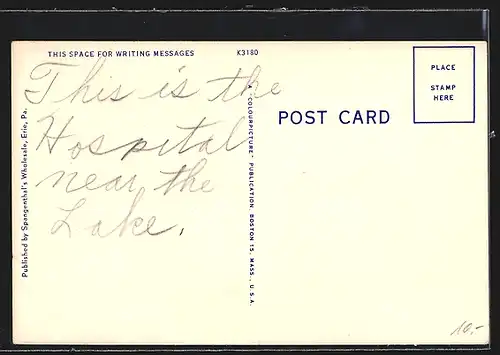 THIS SPACE FOR WRITING MESSAGES
K3180
This is the
Hospital
near the
Lake.
Published by Spangenthal's Wholesale, Erie, Pa.
A "COLOURPICTURE" PUBLICATION BOSTON 15, MASS., U.S.A.
POST CARD
PLACE
STAMP
HERE
10.-